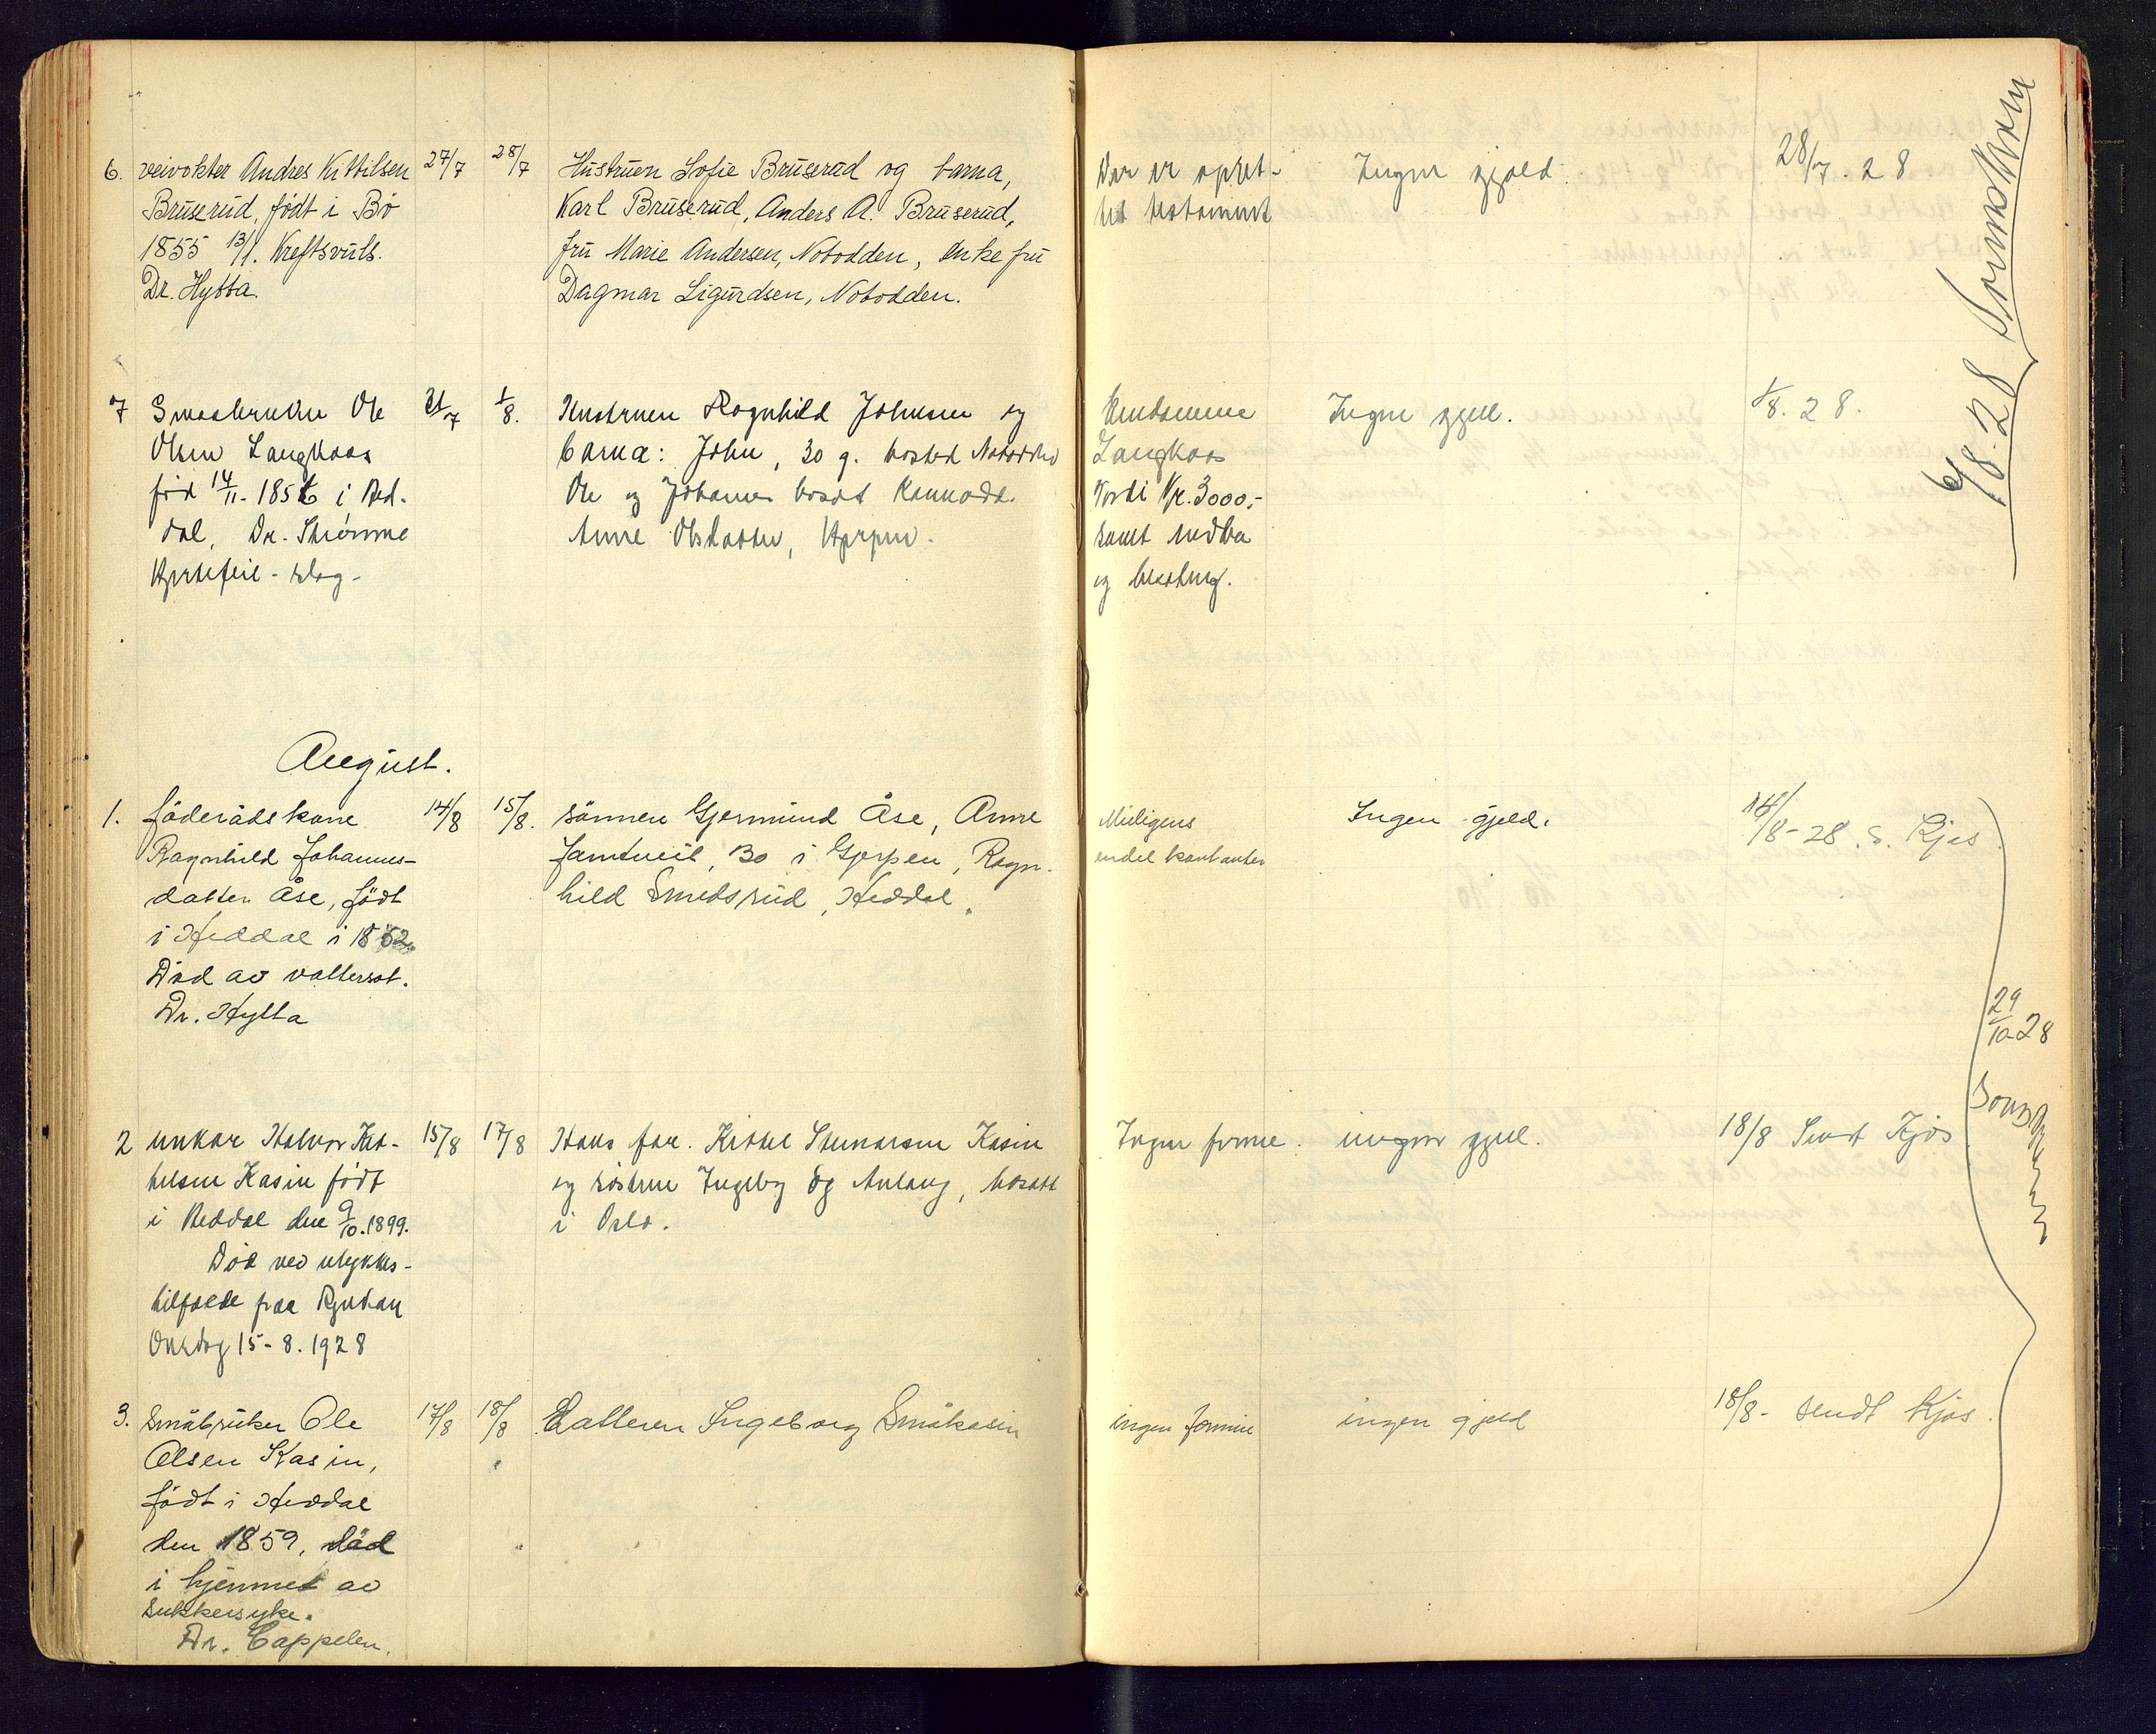 6. veivokter Andres Kittilsen 27/7 28/7 Hustruen Sofie Bruserud og barna, Der er opret- Ingen gjeld. 28/7. 28
Bruserud, født i Bø Karl Bruserud, Anders A. Bruserud, tet testament
1855 13/1. Kreftsvuls. fru Marie Andersen, Notodden, enke fru
Dr. Hytta. Dagmar Sigurdsen, Notodden.
7 Smaabruker Ole 31/7 1/8. Hustruen Ragnhild Johnsen og Eiendommen Ingen gjell. 1/8. 28.
Olsen Langkaas barna: John, 30 g. bosted Notodden Langkaas
fød 14/11-1856 i Hed- Ole og Johannes bosat Verdi Kr. 3000,-
dal, Dr. Strömme Anne Olsdatter, Gjerpen. samt redska
Hjertefeil-slag- og besetning.
6/8.28
August.
1. föderådskone 14/8 15/8. sönnen Gjermund Åse, Anne Muligens Ingen gjeld. 14/8-28. S. Kjos
Ragnhild Johannes- Jamtveit, Bo i Gjerpen, Ragn- endel kontanter
datter Åse, födt hild Smedsrud, Heddal.
i Heddal i 1852.
Död av vattersot.
Dr. Hytta
29/10-28
2 unkar Halvor Kit- 15/8 17/8 Hans far. Kittel Steinarsen Kasin Ingen formue. ingen gjell. 18/8 Sendt Kjos
telsen Kasin født og søstrene Ingebg og Aslaug, bosatt
i Heddal den 9/10.1899. i Oslo.
Död ved ulykkes-
tilfælde paa Rjukan
Onsdag 15-8.1928
3. Småbruker Ole 17/8 18/8 Datteren Ingeborg Småkasin ingen formue ingen gjeld 18/8- sendt Kjos.
Olsen Kasin,
födt i Heddal
den 1859, död
i hjemmet av
sukkersyke.
Dr. Cappelen.